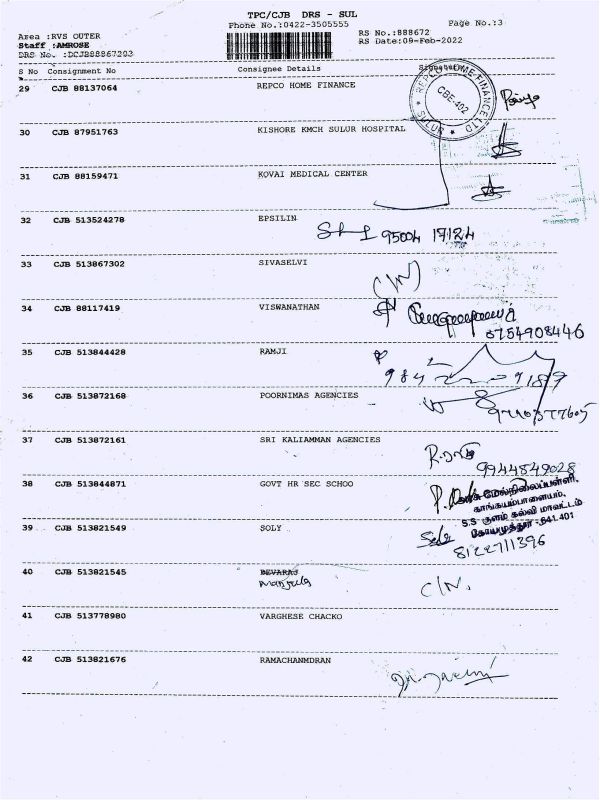 TPC/CJB DRS - SUL
Phone No.:0422-3505555
Page No.:3
Area :RVS OUTER
RS No.:888672
Staff :AMROSE
RS Date:09-Feb-2022
DRS No. :DCJB888867203
S No Consignment No Consignee Details Signature
29 CJB 88137064 REPCO HOME FINANCE
REPCO HOME FINANCE LTD
CBE-402
* SULUR *
30 CJB 87951763 KISHORE KMCH SULUR HOSPITAL
31 CJB 88159471 KOVAI MEDICAL CENTER
32 CJB 513524278 EPSILIN
95004 17124
33 CJB 513867302 SIVASELVI
(IN)
34 CJB 88117419 VISWANATHAN
8754908446
35 CJB 513844428 RAMJI
36 CJB 513872168 POORNIMAS AGENCIES
37 CJB 513872161 SRI KALIAMMAN AGENCIES
9944849028
38 CJB 513844871 GOVT HR SEC SCHOO
மேல்நிலைப்பள்ளி,
காங்கயம்பாளையம்,
S.S குளம் கல்வி மாவட்டம்
கோயமுத்தூர் -641 401
39 CJB 513821549 SOLY
8122711396
40 CJB 513821545 DEVARAJ
Manjula
C/N.
41 CJB 513778980 VARGHESE CHACKO
42 CJB 513821676 RAMACHANMDRAN